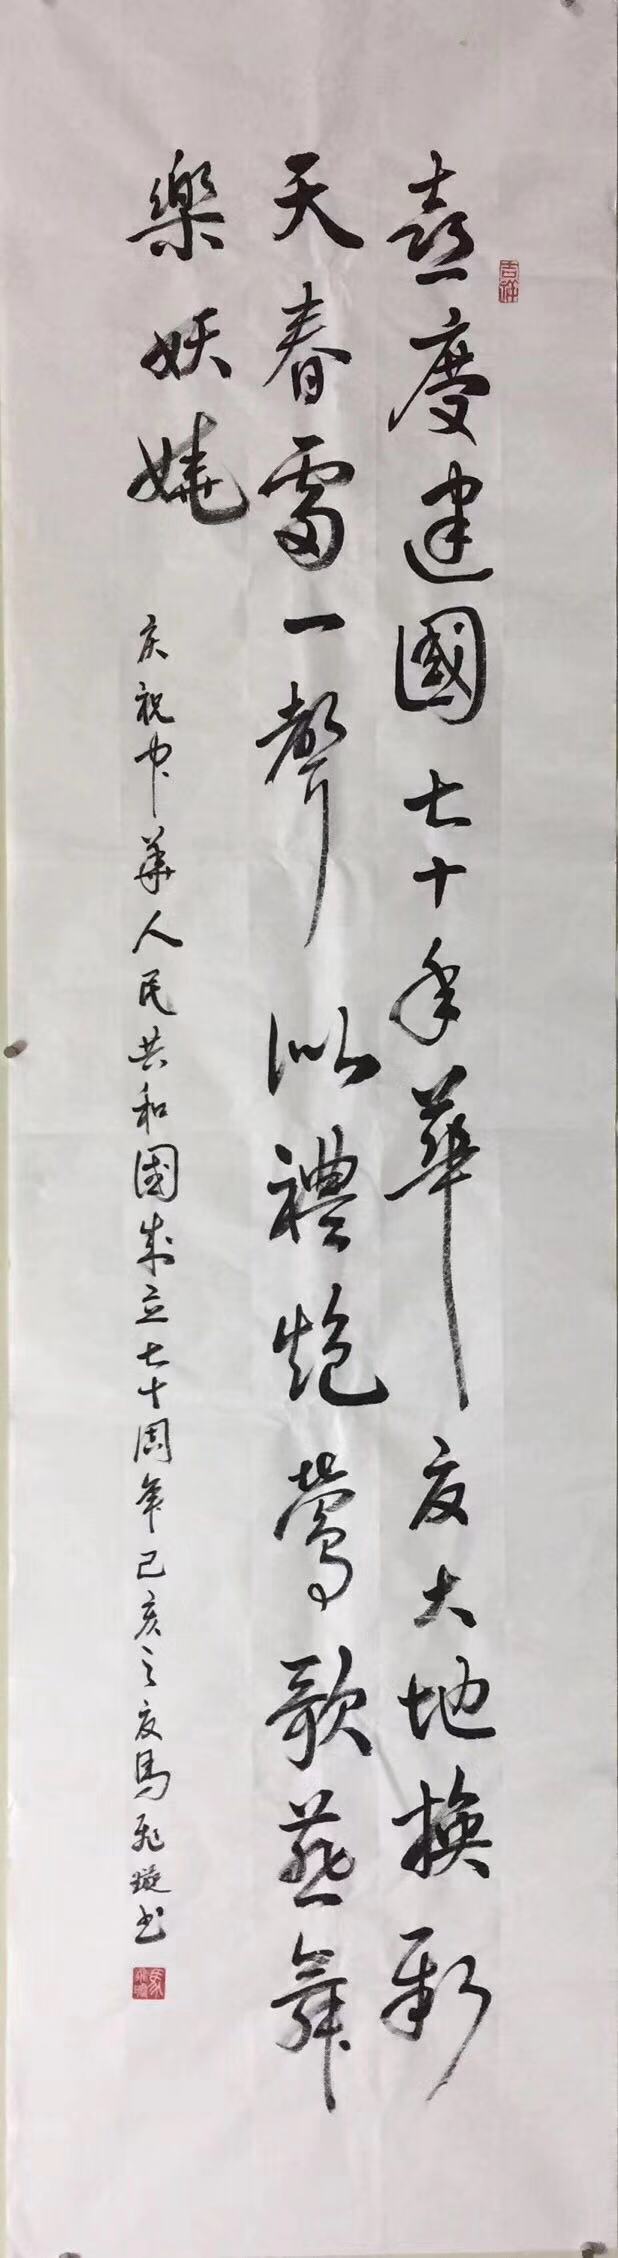 喜慶建國七十年華夏大地換新
天春雷一聲似禮炮鶯歌燕舞
樂妖嬈
庆祝中華人民共和國成立七十周年己亥之夏馬飛璇书
吉祥